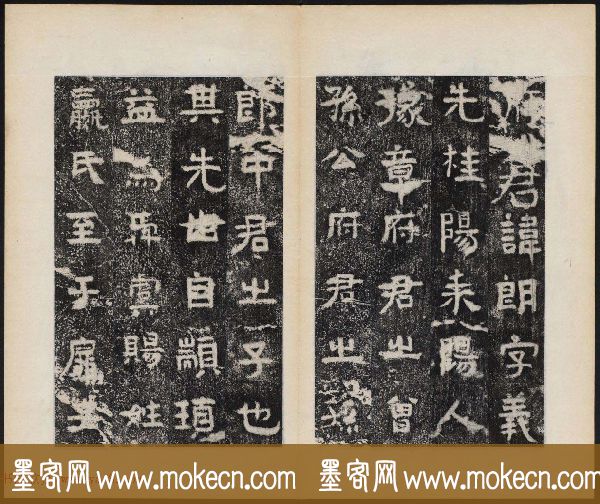 府君諱朗字義
先桂陽耒陽人
豫章府君之曾
孫公府君之孫
郎中君之子也
其先世自顓頊
益為舜虞賜姓
嬴氏至于
墨客网 www.mokecn.com 墨客网 www.mokecn.com